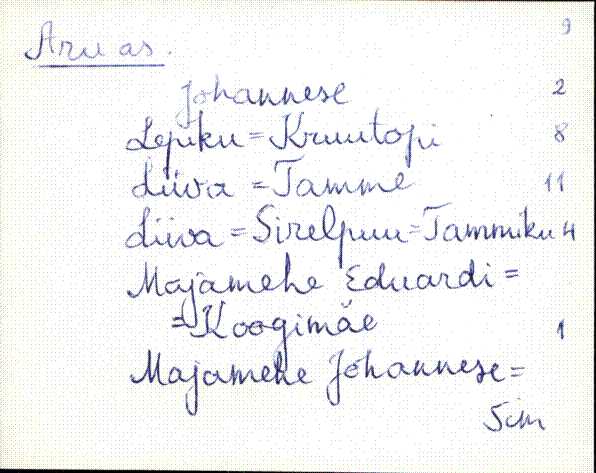 9
Aru as.
Johannese 2
Lepiku = Kruutopi 8
Liiva = Tamme 11
Liiva = Sirelpuu = Tammiku 4
Majamehe Eduardi =
= Koogimäe 1
Majamehe Johannese =